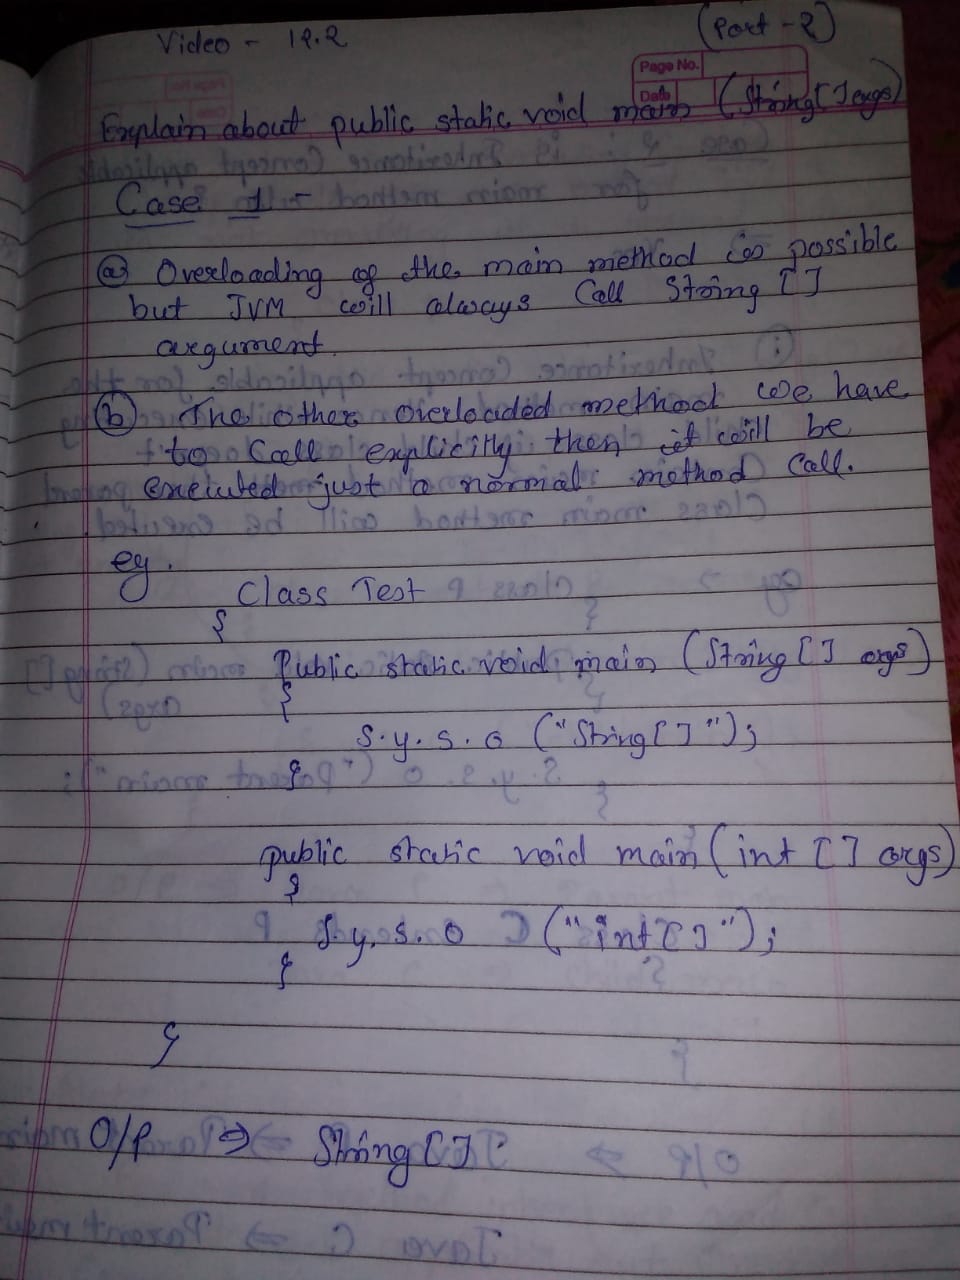 Video - 12.2 (Part - 2)
Page No.
Date
Explain about public static void main (String[] args)
Case 1 -
(a) Overloading of the main method is possible
but JVM will always Call String []
argument.
(b) The other overloaded method we have
to Call explicitly then it will be
executed just a normal method Call.
eg.
Class Test
{
Public static void main (String [] args)
{
S.y.s.o ("String[]");
}
public static void main (int [] args)
{
S.y.s.o ("int[]");
}
}
O/P ⇒ String []